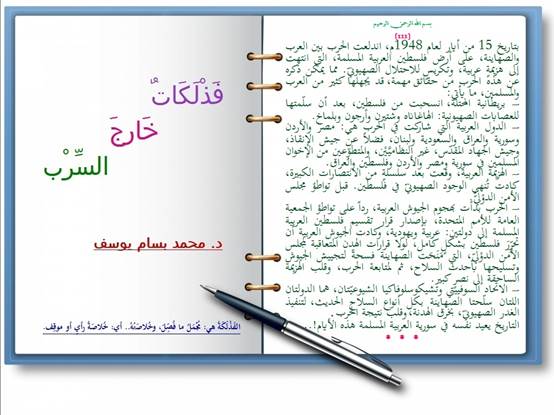 بسم الله الرحمن الرحيم
(111)
بتاريخ 15 من أيار لعام 1948م، اندلعت الحرب بين العرب
والصهاينة، على أرض فلسطين العربية المسلمة، التي انتهت
إلى هزيمة عربية، وتكريس للاحتلال الصهيونيّ. مما يمكن ذكره
عن هذه الحرب من حقائق مهمة، قد يجهلها كثير من العرب
والمسلمين، ما يأتي:
– بريطانية المحتلّة، انسحبت من فلسطين، بعد أن سلّمتها
للعصابات الصهيونية: الهاغاناه وشتيرن وأرجون وبلماخ.
– الدول العربية التي شاركت في الحرب هي: مصر والأردن
وسورية والعراق والسعودية ولبنان، فضلاً عن جيش الإنقاذ،
وجيش الجهاد المقدّس، غير النظاميَّيْن، والمتطوّعين من الإخوان
المسلمين في سورية ومصر والأردن وفلسطين والعراق.
– الهزيمة العربية، وقعت بعد سلسلة من الانتصارات الكبيرة،
كادت تُنهي الوجود الصهيونيّ في فلسطين. قبل تواطؤ مجلس
الأمن الدوليّ.
– الحرب بدأت بهجوم الجيوش العربية، رداً على تواطؤ الجمعية
العامة للأمم المتحدة، بإصدار قرار تقسيم فلسطين العربية
المسلمة إلى دولتين: عربية ويهودية، وكادت الجيوش العربية أن
تحرّر فلسطين بشكلٍ كامل، لولا قرارات الهدن المتعاقبة لمجلس
الأمن الدوليّ، التي مَنَحَتْ الصهاينة فسحة لتجييش الجيوش
وتسليحها بأحدث السلاح، ثم لمتابعة الحرب، وقلب الهزيمة
الساحقة إلى نصر كبير.
– الاتحاد السوفييتي وتشيكوسلوفاكيا الشيوعيّتان، هما الدولتان
اللتان سلّحتا الصهاينة بكل أنواع السلاح الحديث، لتنفيذ
الغدر الصهيونيّ، بخرق الهدنة، وقلب نتيجة الحرب.
التاريخ يعيد نفسه في سورية العربية المسلمة هذه الأيام!..
فَذْلَكَاتٌ
خَارجَ
السِّرْب
د. محمد بسام يوسف
الفَذْلَكَةُ هي: مُجْمَلُ ما فُصِّلَ، وخُلاصَتُهُ.. أي: خُلاصَةُ رأيٍ أو موقِف.